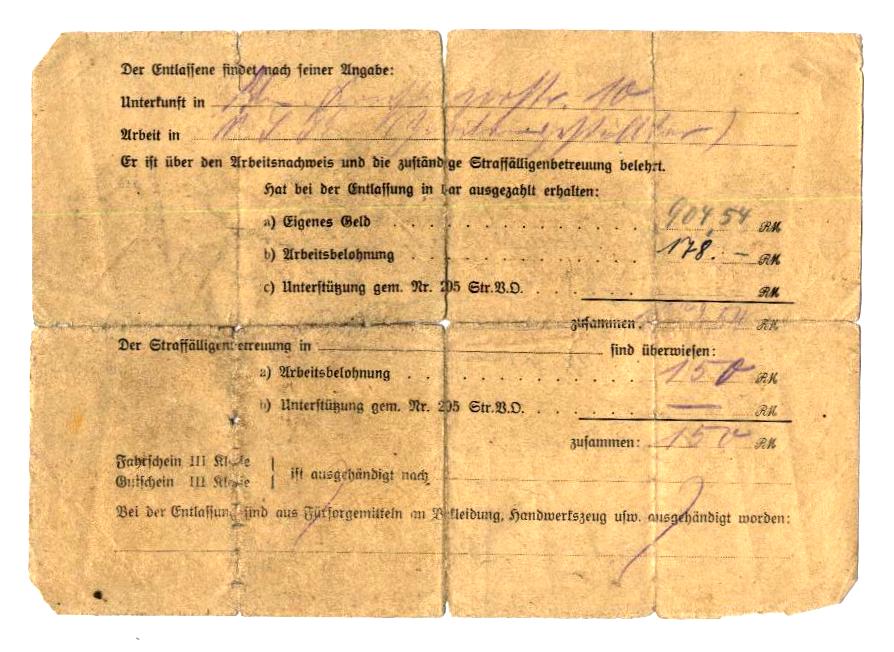 Der Entlassene findet nach seiner Angabe:
Unterkunft in 10
Arbeit in
Er ist über den Arbeitsnachweis und die zuständige Straffälligenbetreuung belehrt.
Hat bei der Entlassung in bar ausgezahlt erhalten:
a) Eigenes Geld . . . . . . . . . . . . 904,54 RM
b) Arbeitsbelohnung . . . . . . . . . . . 178.— RM
c) Unterstützung gem. Nr. 205 Str.V.O. . . . . RM
zusammen: RM
Der Straffälligenbetreuung in sind überwiesen:
a) Arbeitsbelohnung . . . . . . . . . . . 150 RM
b) Unterstützung gem. Nr. 205 Str.V.O. . . . . — RM
zusammen: 150 RM
Fahrschein III Klasse
Gutschein III Klasse
ist ausgehändigt nach
Bei der Entlassung sind aus Fürsorgemitteln an Bekleidung, Handwerkszeug usw. ausgehändigt worden: